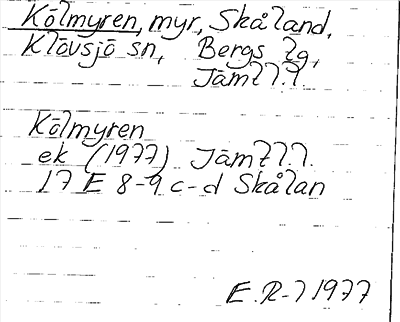 Kölmyren, myr, Skåland,
Klövsjö sn, Bergs lg,
Jämtl.
Kölmyren
ek (1977) Jämtl.
17 E 8-9 c-d Skålan
E.R-1977